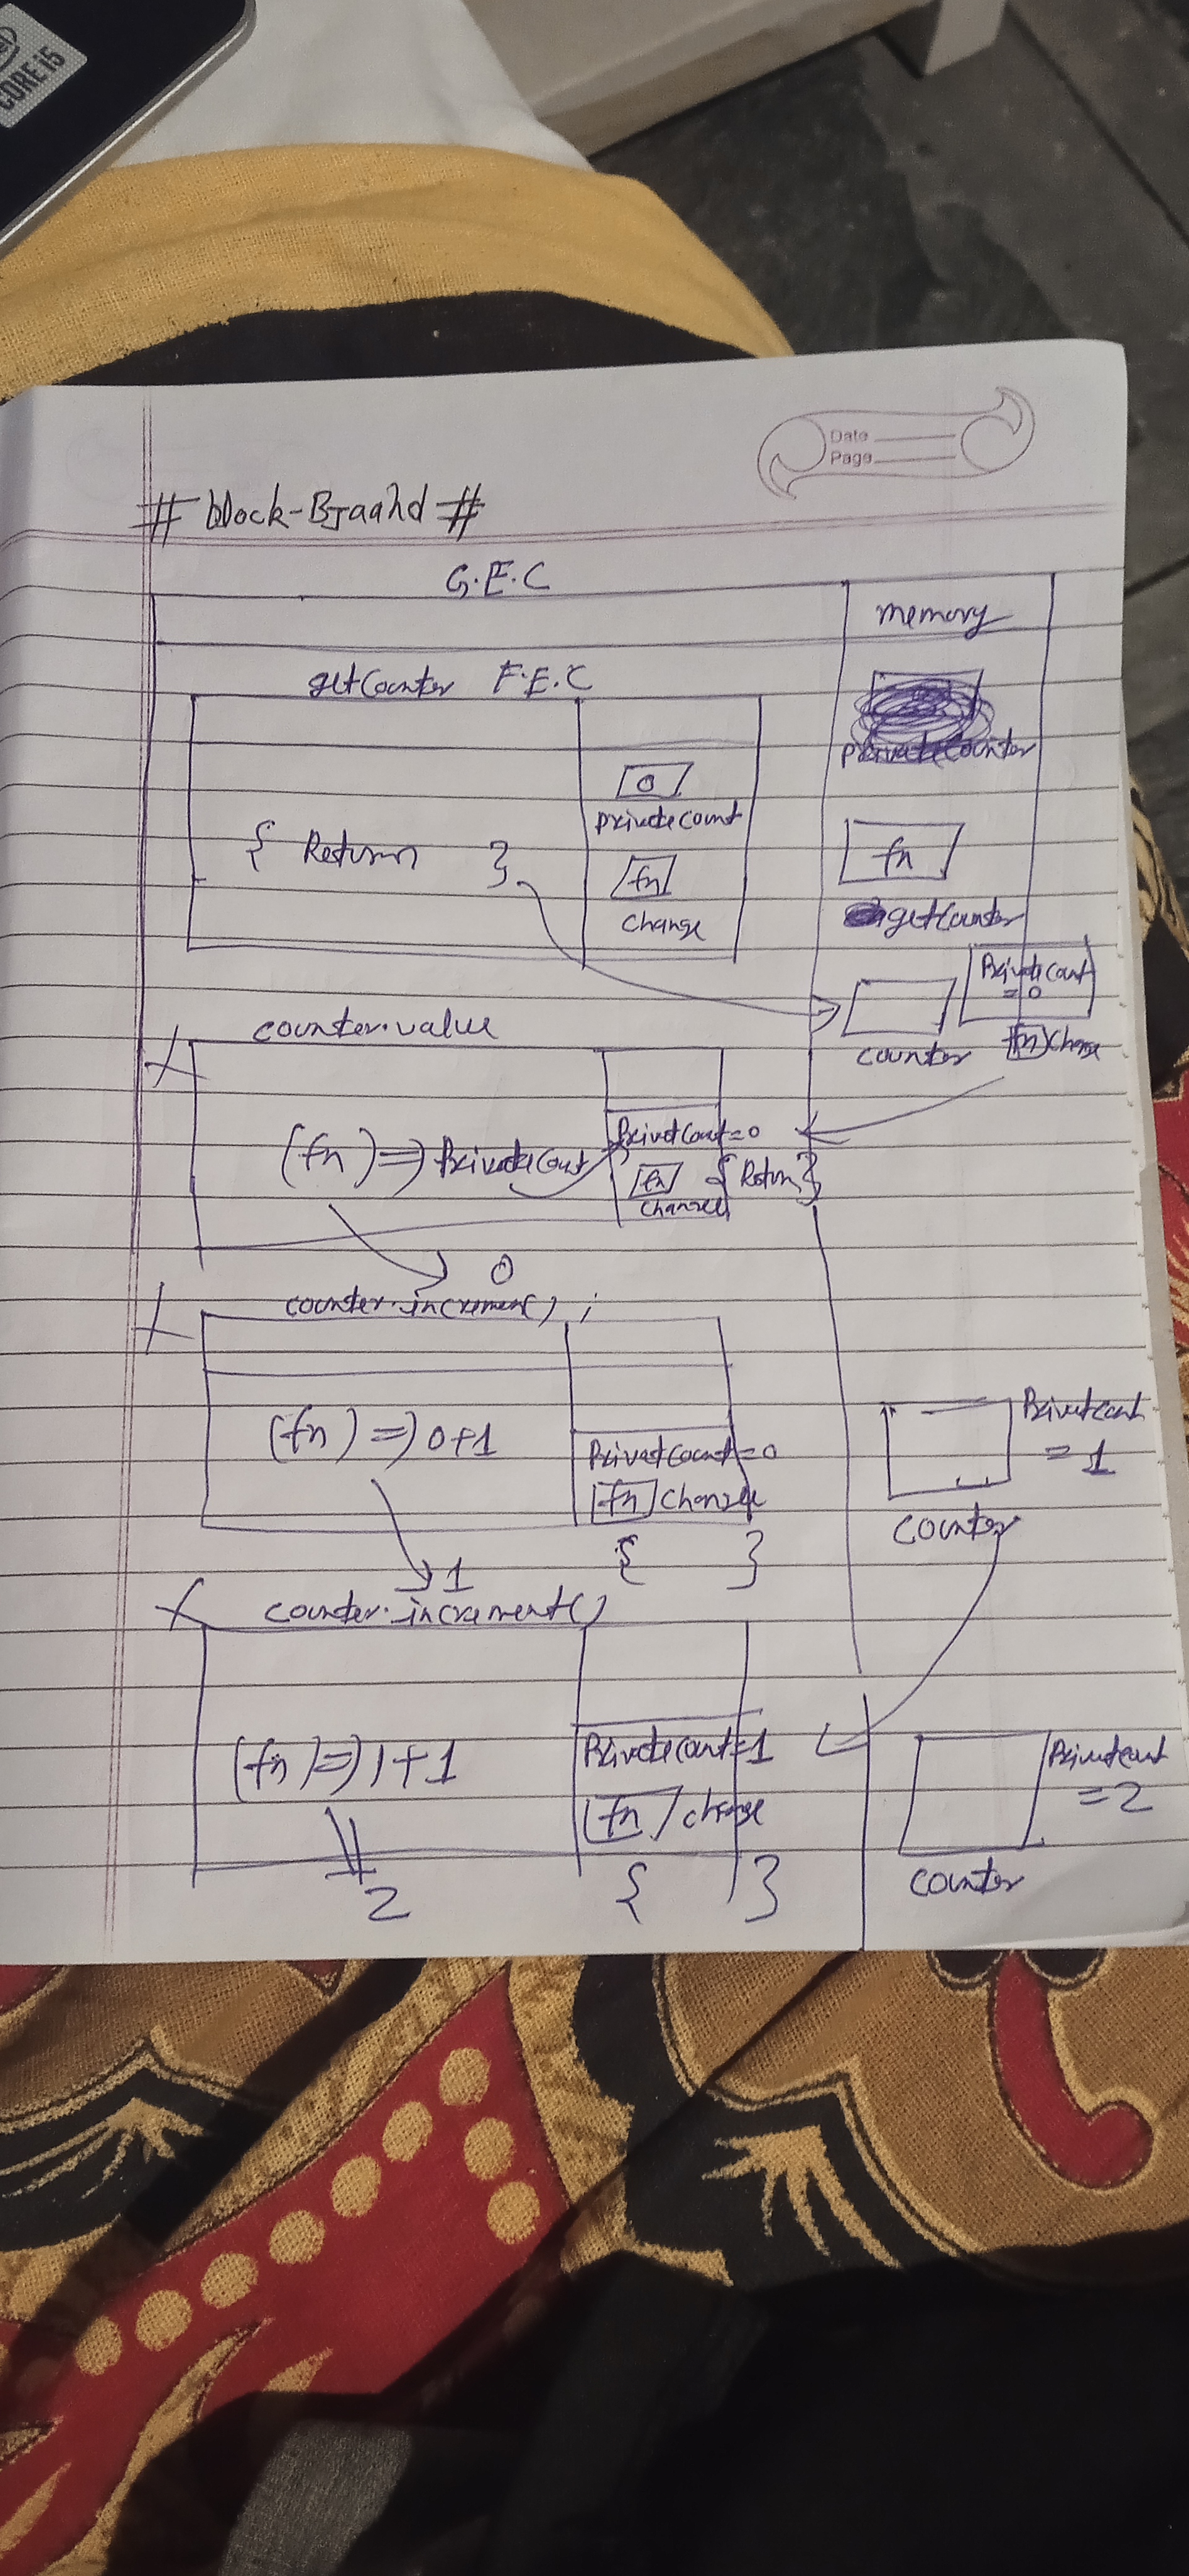 CORE i5
Date
Page
# block-Braahd #
G.E.C
memory
getCounter F.E.C
0
privatecount
privateCounter
{ Return }
fn
change
fn
getCounter
Privatecount
= 0
counter
fn change
counter.value
(fn) => Privatecount
Privetcount=0
fn
change
{ Return }
0
counter.increment() ;
(fn) => 0+1
Privatecount=0
fn change
{ }
Privetcount
= 1
counter
1
counter.increment()
(fn) => 1+1
Privatecount=1
fn change
{ }
2
Privetcount
=2
counter